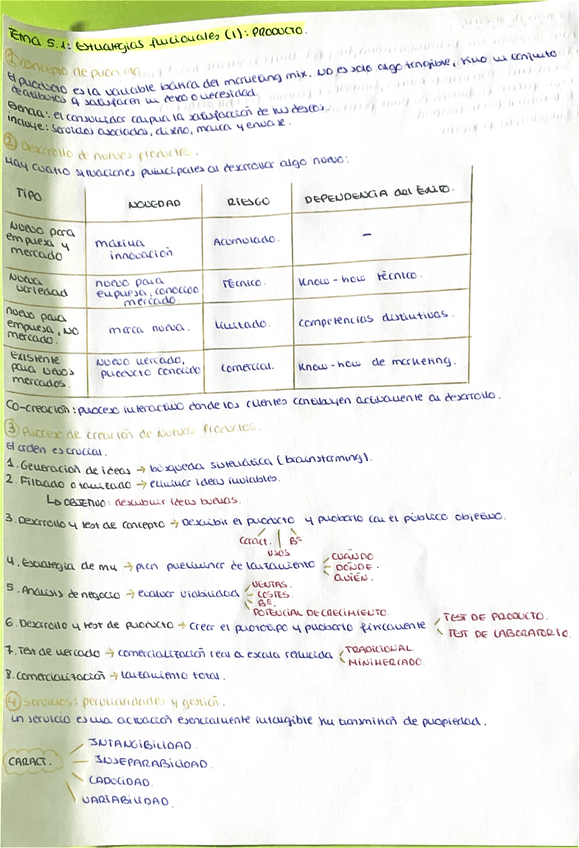 TEMA 5.1: Estrategias funcionales (1): PRODUCTO.
① Concepto de producto
El producto es la variable básica del marketing mix. NO es solo algo tangible, sino un conjunto
de atributos q satisfacen un deseo o necesidad.
Esencia: el consumidor compra la satisfacción de sus deseos.
Incluye: servicios asociados, diseño, marca y envase.
② Desarrollo de nuevos productos.
Hay cuatro situaciones principales al desarrollar algo nuevo:
TIPO NOVEDAD RIESGO DEPENDENCIA del ÉXITO.
Nuevo para empresa y mercado máxima innovación Acumulado. -
Nueva variedad nuevo para empresa, conocido mercado TÉCNICO. Know-how técnico.
nuevo para empresa, NO mercado. marca nueva. Limitado. competencias distintivas.
Existente para nuevos mercados. Nuevo mercado, producto conocido Comercial. Know-how de marketing.
Co-creación: proceso interactivo donde los clientes contribuyen activamente al desarrollo.
③ Proceso de creación de nuevos productos.
El orden es crucial.
1. Generación de ideas → búsqueda sistemática (brainstorming).
2. Filtrado o tamizado → eliminar ideas inviables.
↳ OBJETIVO: descubrir ideas buenas.
3. Desarrollo y test de concepto → Describir el producto y probarlo con el público objetivo.
caract. | Bº
usos
4. Estrategia de mk → plan preliminar de lanzamiento CUÁNDO
DÓNDE.
QUIÉN.
5. Análisis de negocio → evaluar viabilidad VENTAS.
COSTES.
Bº.
POTENCIAL DE CRECIMIENTO.
6. Desarrollo y test de producto → crear el prototipo y probarlo físicamente TEST DE PRODUCTO.
TEST DE LABORATORIO.
7. Test de mercado → comercialización real a escala reducida TRADICIONAL.
MINIMERCADO.
8. Comercialización → lanzamiento total.
④ Servicios: peculiaridades y gestión.
un servicio es una actuación esencialmente intangible sin transmisión de propiedad.
CARACT. INTANGIBILIDAD.
INSEPARABILIDAD.
CADUCIDAD.
VARIABILIDAD.